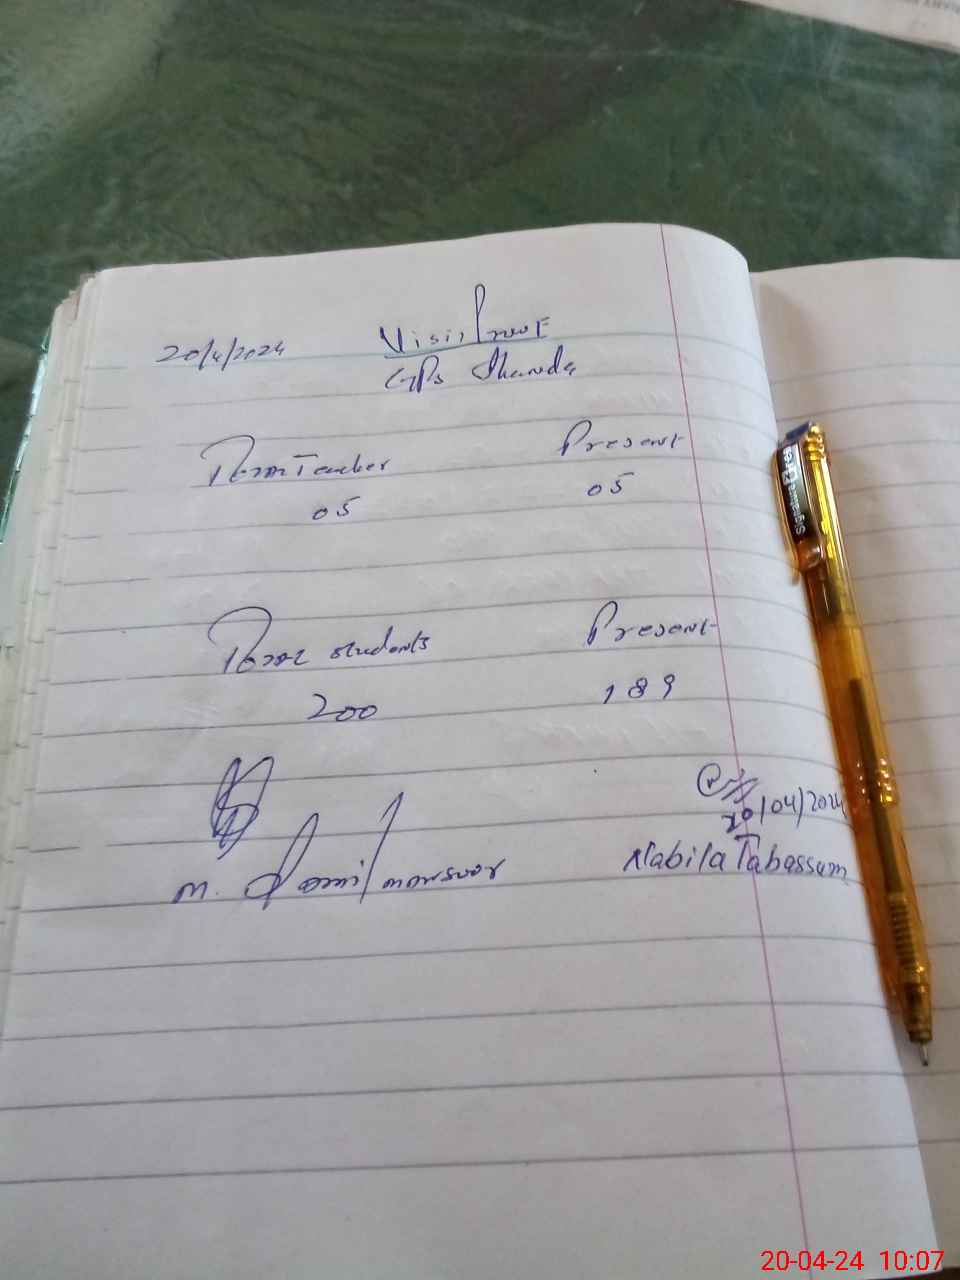 20/4/2024
Visit
GPS
Total Teacher Present
05 05
Total students Present
200 189
20/04/2024
M. Jamil
Nabila Tabassum
Signature
20-04-24 10:07